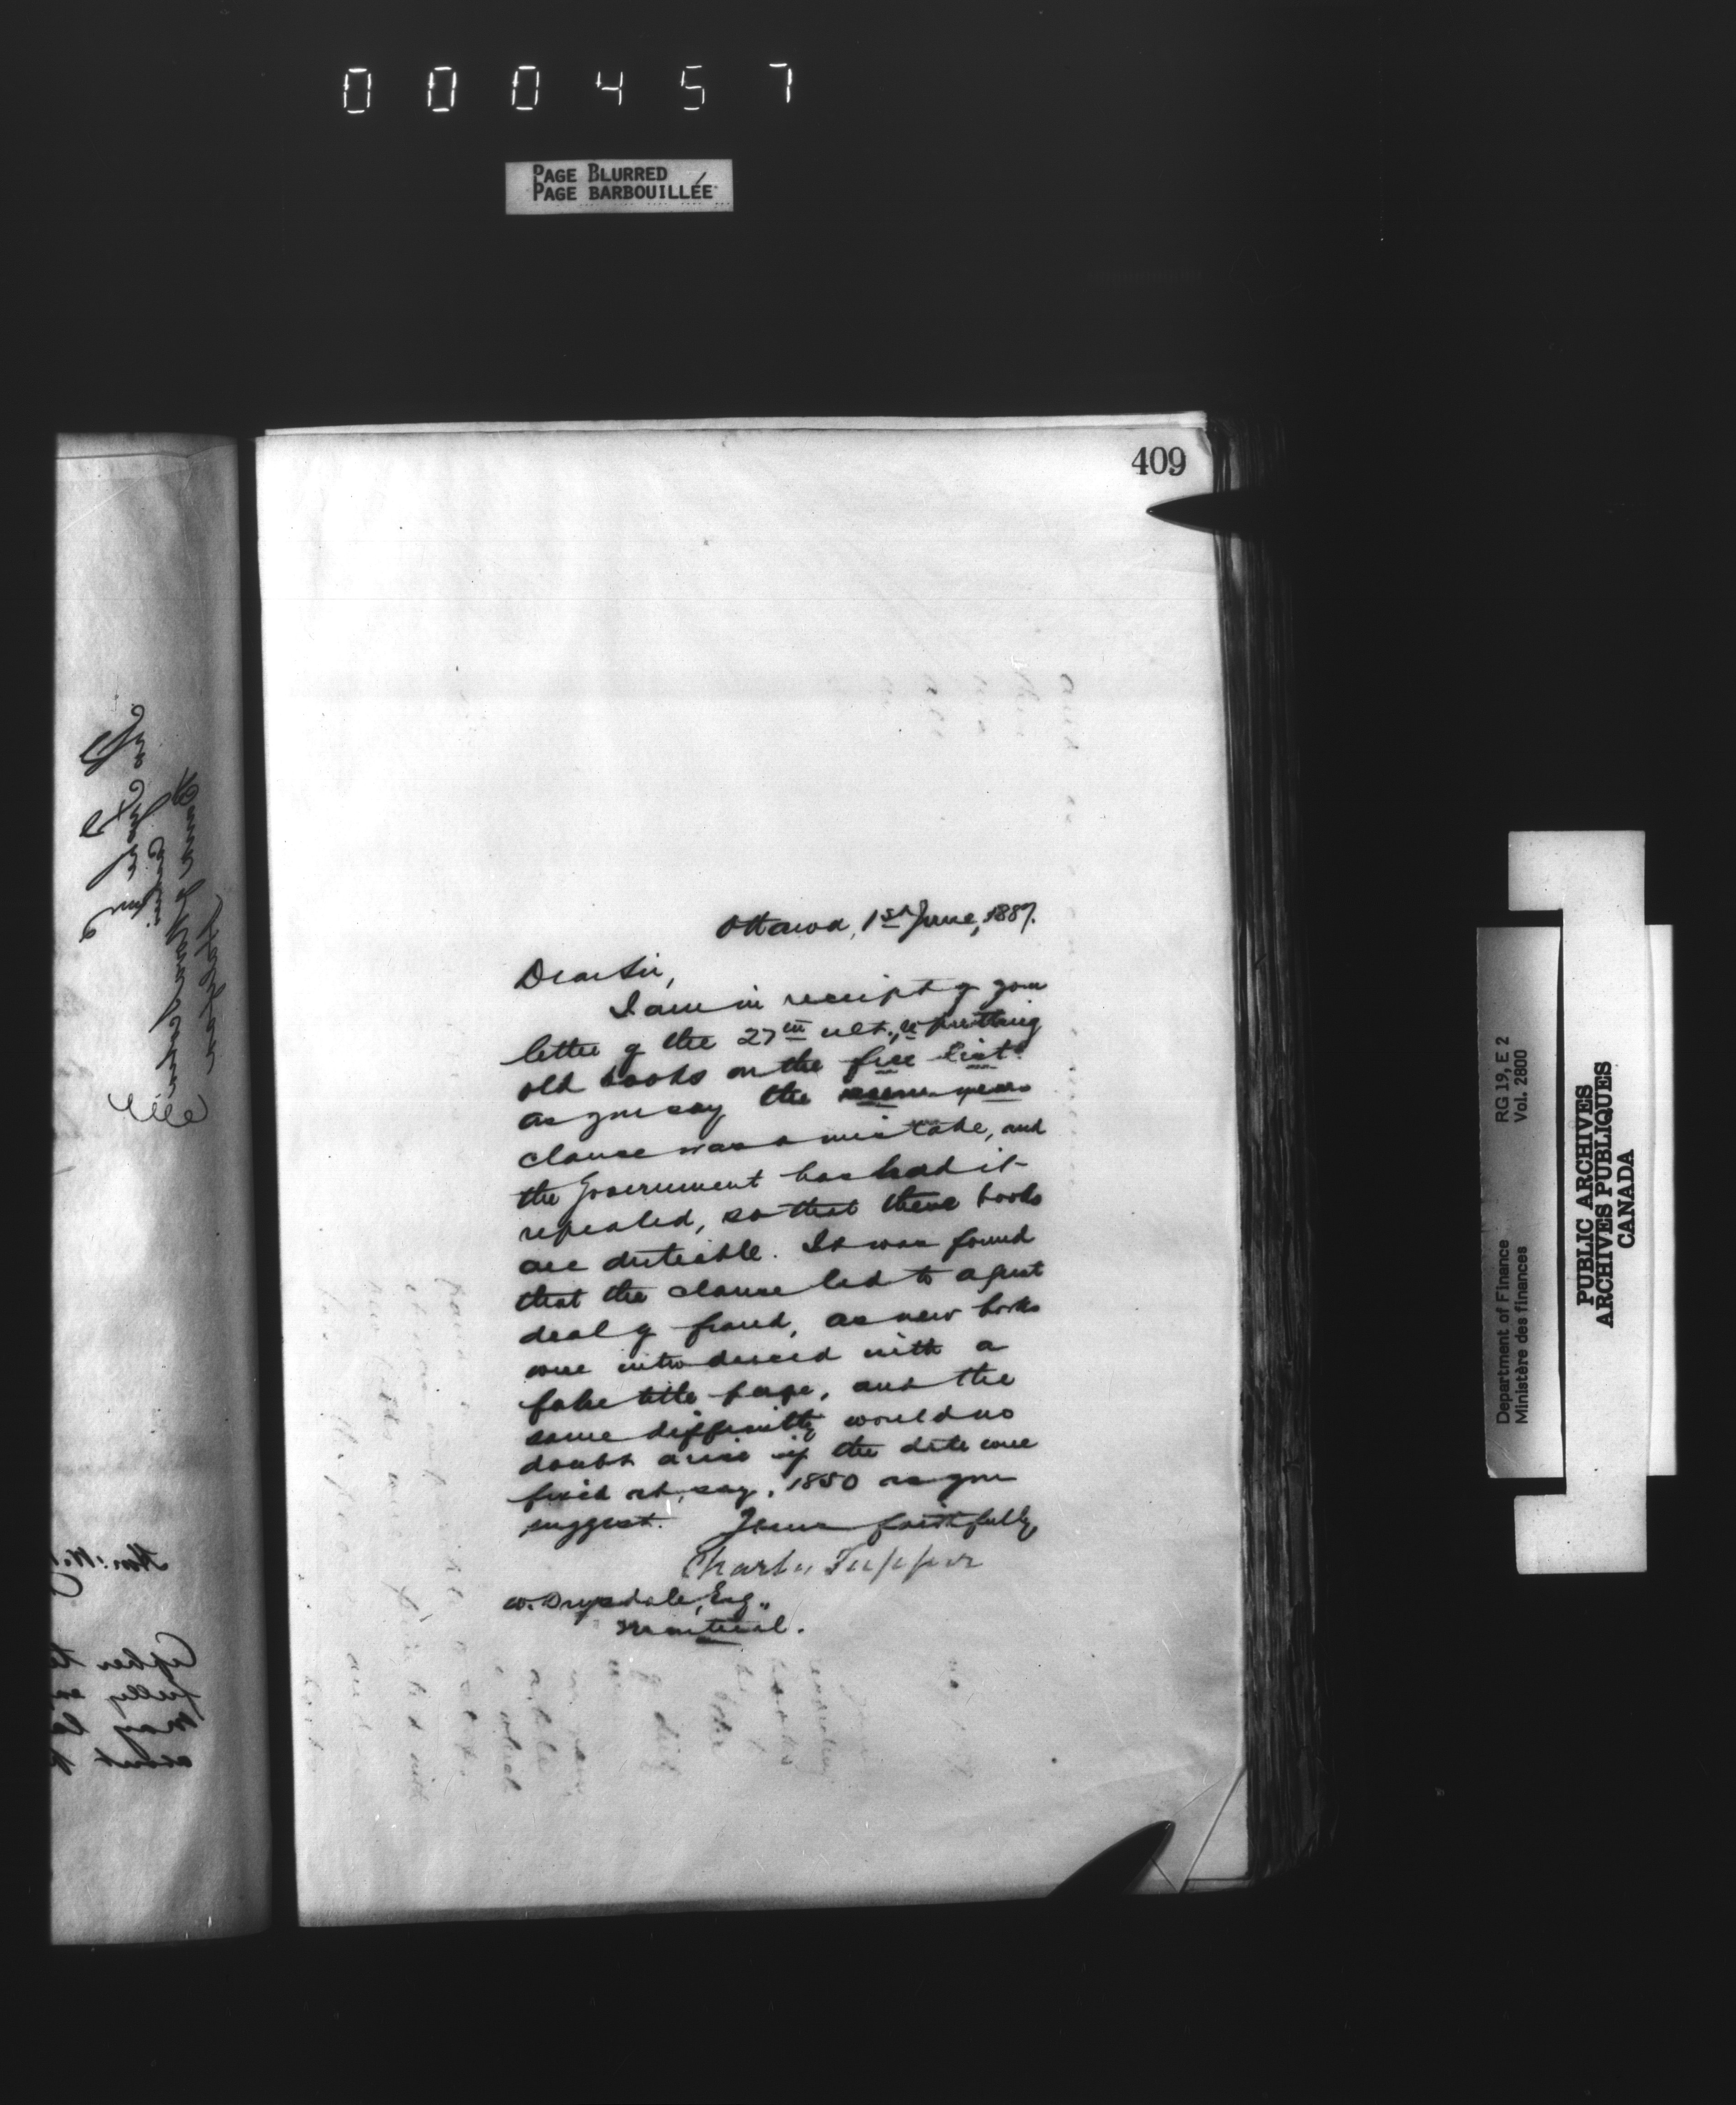 000457
PAGE BLURRED
PAGE BARBOUILLÉE
409
Ottawa, 1st June, 1887.
Dear Sir,
I am in receipt of your
letter of the 27th ult., re putting
old books on the free list.
As you say the seven years
clause was a mistake, and
the Government has had it
repealed, so that these books
are dutiable. It was found
that the clause led to a great
deal of fraud, as new books
were introduced with a
false title page, and the
same difficulty would no
doubt arise if the date were
fixed at, say, 1850 as you
suggest. Yours faithfully,
Charles Tupper
W. Drysdale, Esq.,
Montreal.
Department of Finance RG 19, E 2
Ministère des finances Vol. 2800
PUBLIC ARCHIVES
ARCHIVES PUBLIQUES
CANADA